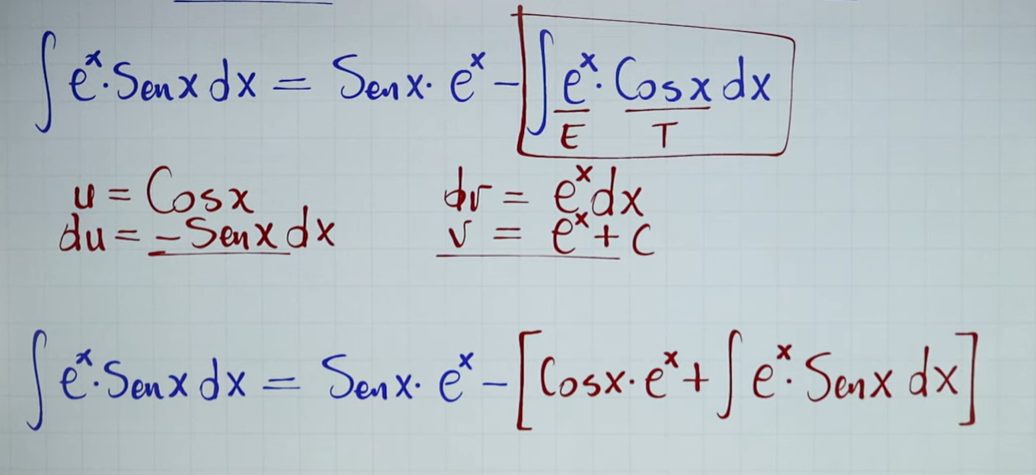 ∫ eˣ · Senx dx = Senx · eˣ − ∫ eˣ · Cosx dx
E T
u = Cosx dv = eˣdx
du = −Senx dx v = eˣ + C
∫ eˣ · Senx dx = Senx · eˣ − [Cosx · eˣ + ∫ eˣ · Senx dx]